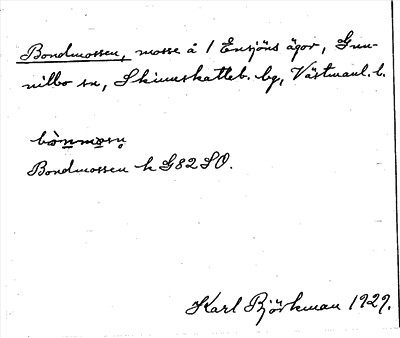 Bondmossen, mosse å 1 Ensjöns ägor, Gun-
nilbo sn, Skinnskatteb. bg, Västmanl. l.
bònmosn̥
Bondmossen k G82SO.
Karl Björkman 1929.